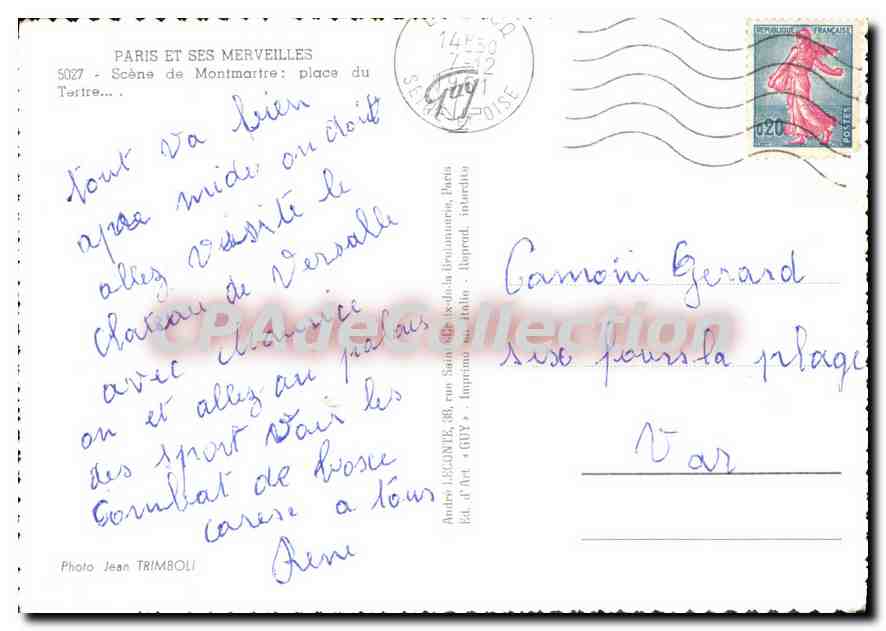 PARIS ET SES MERVEILLES
5027 - Scène de Montmartre: place du
Tertre... .
tout va bien
apre midi on doit
allez visité le
chateau de Versalle
avec Maurice
on et allez au palais
des sport voir les
Combat de boxe
carese a tous
Rene
Photo Jean TRIMBOLI
André LECONTE, 38, rue Sainte-Croix-de-la-Bretonnerie, Paris
Ed. d'Art. « GUY » - Imprimé en Italie - Reprod. interdite
14H30
7-12
SEINE OISE
Guy
REPUBLIQUE FRANÇAISE
0,20
POSTES
Camoin Gerard
six fours la plage
Var
CPAdeCollection